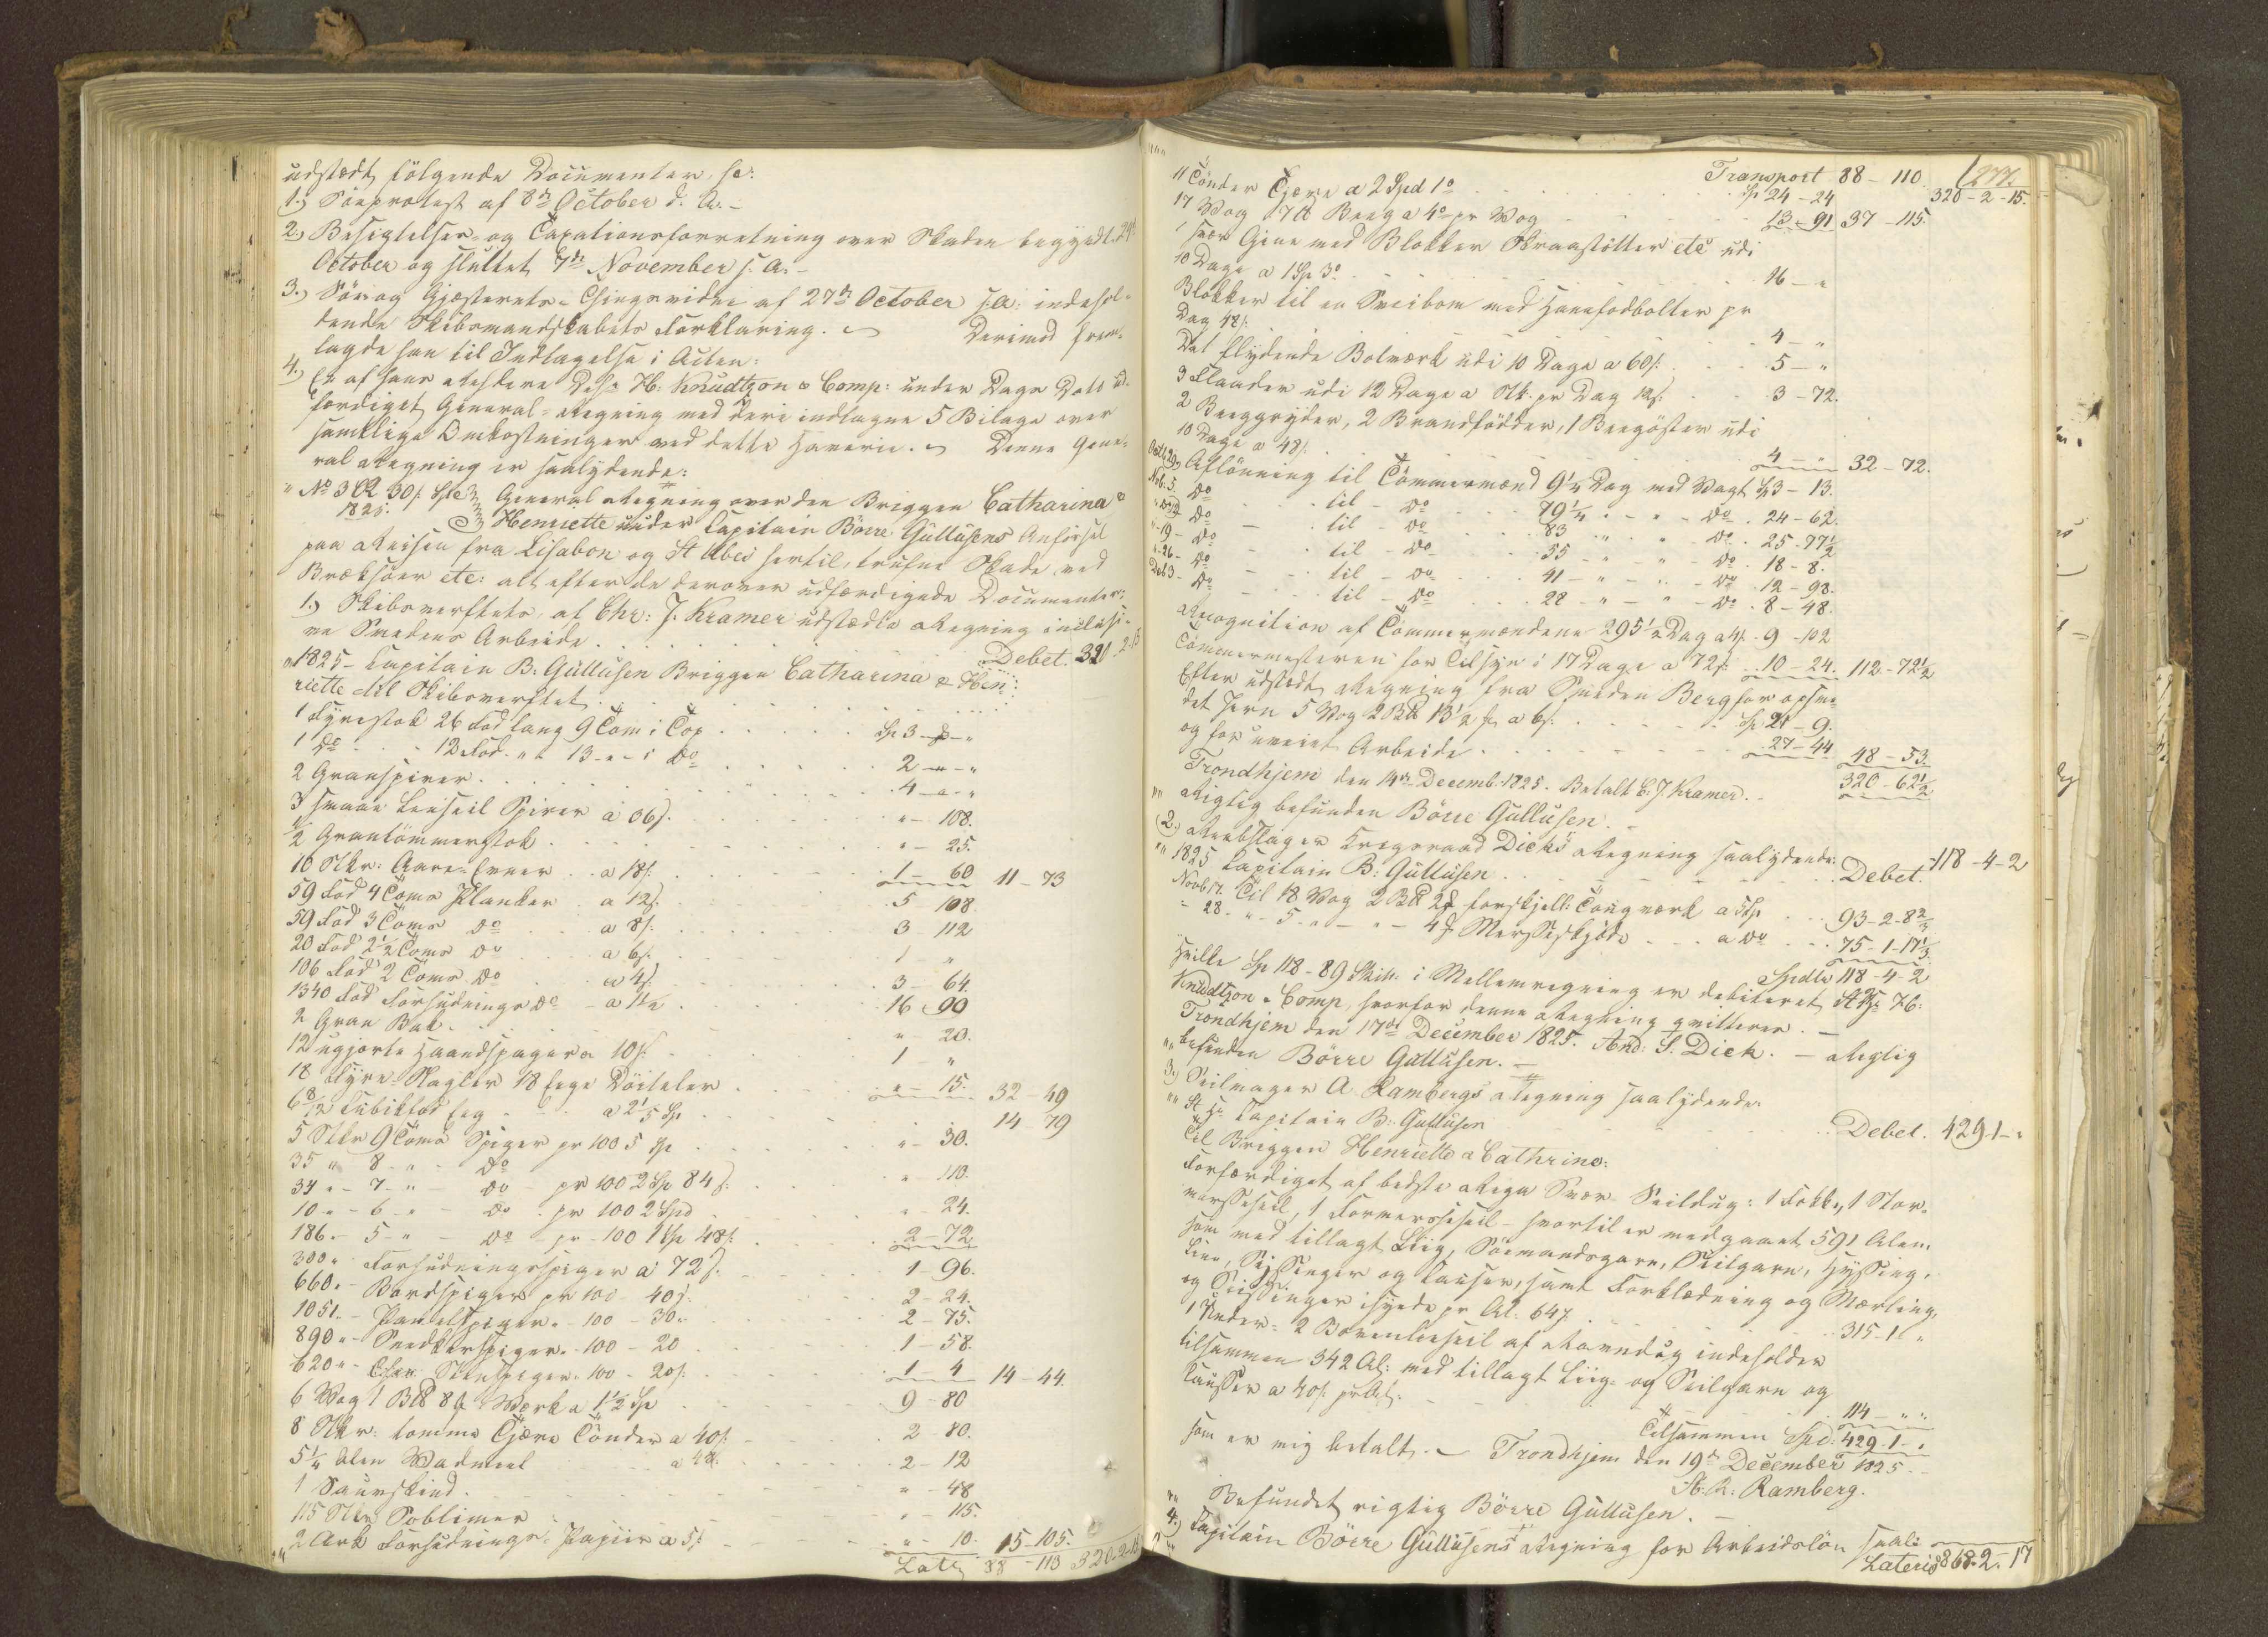 udstædt følgende Documenter, se:
1.) Søeprotest af 8de October d: A. -
2.) Besigtelses- og Taxationsforretning over Skaden begyndt 24de
October og sluttet 7de November s. A. -
3.) Søe og Gjæsterets- Thingsvidne af 27de October s. A: indehol-
dende Skibsmandskabets Forklaring. - Derimod frem-
lagde han til Indtagelse i Acten:
4.) En af hans Rehdere DHr H: Knudtzon & Comp: under Dags Dato ud-
færdiget General-Regning med deri indtagne 5 Bilage over
samtlige Omkostninger ved dette Haverie. - Denne Gene-
ral Regning er saalydende:
" No 362 30 s. General Regning over den Briggen Catharina &
1825. Henriette under Capitain Börre Gullusens Anførsel
paa Reisen fra Lisabon og St Ubes hertil, trufne Skade ved
Bræksøer etc: alt efter de derover udfærdigede Documenter:
1.) Skibsverftets, af Chr: J. Kramer udstædte Regning inclusi-
ve Smedens Arbeide . . . 320-2-15
1825 - Capitain B. Gullusen Briggen Catharina & Hen- Debet.
riette til Skibsverftet . . .
1 Fyrestok 26 Fod lang 9 Tom i Top . . . Sp 3 - " - "
1 do . . 12 Fod " 13 - " - i do . . . 2 - " - "
2 Granspirer . . . 4 - " - "
3 smaae Leeseil Spirer a 36 s. . . . " - 108.
1/2 Grantømmerstok . . . " - 25.
10 Stkr: Aare-Emner . . a 18 s. . . . 1 - 60 11 - 73
59 Fod 4 Toms Planker . a 12 s. . . . 5 108.
59 Fod 3 Toms do . . a 8 s. . . . 3 - 112
20 Fod 2 1/2 Toms do . . a 6 s. . . . 1 - "
106 Fod 2 Toms do . . a 4 s. . . . 3 - 64.
1340 Fod Forhudnings do - a 1 1/2 . . . 16 90
2 Gran Bak . . . " - 20.
12 ugjorte Haandspager a 10 s. . . . 1 "
18 Fyre-Nagler 18 Eege Døiteler . . . " - 15. 32 - 49
6 8/12 Cubikfod Eeg - - . a 2 1/5 Sp . . . 14 79
5 Stkr 9 Toms Spiger pr 100 5 Sp . . . " - 30.
35 " 8 - " - do . . . " - 110.
34 " - 7 - " - do - pr 100 2 Sp 84 s. . . . " - 24.
10 - " - 6 - " - do - pr 100 2 Spd
186 - 5 - " - do - pr - 100 1 Sp 48 s. . . . 2 - 72
300 " Forhudningsspiger a 72 s. . . . 1 - 96.
660 " - Bordspiger pr 100 - 40 s. . . . 2 - 24.
1051 " - Panelspiger " - 100 - 30 " . . . 2 - 75.
890 " - Snedkerspiger " - 100 - 20 . . . 1 - 58.
620 " - Skruspiger " 100 - 20 s. . . . 1 - 4 14 - 44.
6 Wog 1 B℔ 8 ℔ Werk a 1 1/2 Sp . . . 9 - 80
8 Stkr: tomme Tjære Tønder a 40 s. . . . 2 80.
5 1/4 Alen Wadmeel a 48 . . . 2 - 12
1 Saueskind . . . " - 48
115 Stkr Soblimer . . . " 115.
2 Ark Forhudnings-Papiir a 5 s. . . . " - 10. 15 - 105.
Latr 88 - 110 320.2.15
Transport 88 - 110. 277.
11 Tønder Tjære a 2 Spd 1o . . . Sp 24 - 24 320 - 2 - 15.
17 Wog 17 ℔ Beeg a 4o pr Wog . . . 13 - 91 37 - 115.
1 svær Gien med Blokker Skraastøtter etc udi
10 Dage a 1 Sp 3o . . . 16 - "
Blokker til en Sveibom med Hanefodbolter pr
Dag 48 s. . . . 4 - "
Det flydende Bolværk udi 10 Dage a 60 s. . . . 5 - "
3 Flaader udi 12 Dage a Stk. pr Dag 12 s. . . . 3 - 72.
2 Beeggryder, 2 Brandfødder, 1 Beegøster udi
10 Dage a 48 s. . . . 4 - " 32 - 72.
Octb. 29, Aflønning til Tømmermænd 9 1/4 Dag med Vagt Sp 3 - 13.
Nvb. 5. do - til - do . . 79 1/4 " - " - do . 24 - 62.
" 12 do - til - do . . 83 " - " do . 25 - 77 1/2
" - 19 - do - til - do . . 55 - " - " - do . 18 - 8.
" - 26 - do - til - do . . 41 - " - " - do . 12 - 98.
Decb 3 - do - til - do . . 28 - " - " - do . 8 - 48.
Recognition af Tømmermændene 295 1/2 Dag a 4 s. 9 - 102
Tømmermesteren for Tilsyn i 17 Dage a 72 s. . 10 - 24. 112 - 72 1/2
Efter udstædt Regning fra Smeden Berg for opsme-
det Jern 5 Wog 2 B℔ 13 1/2 ℔ a 6 s. . . . Sp 21 - 9.
og for uveiet Arbeide . . . 27 - 44 48 - 53.
320 - 62 1/2
Trondhjem den 14de Decemb: 1825. Betalt C. J. Kramer. -
"" Rigtig befunden Börre Gullusen. -
2.) Reebslager Krogsraad Dicks Regning saalydende: 118 - 4 - 2
"" 1825 Capitain B. Gullusen . . . Debet.
Novb 17. Til 18 Wog 2 B℔ 2 ℔ forskjell: Tougværk a 5 Sp . . . 93 - 2 - 8 2/3
- 28 - " - 5 - " - " - 4 ℔ Mersseskjøde . . . a do . . . 75 - 1 - 17 1/3
Spdlr 118 - 4 - 2
Hvilke Sp 118 - 89 Skil: i Mellemregning er debiteret St Hr H:
Knudtzon & Comp, hvorfor denne Regning qvitteres. -
Trondhjem den 17de December 1825. And: S. Dick. - Rigtig
"" befunden Börre Gullusen. -
3.) Seilmager A Rambergs Regning saalydende:
"" St Hr Capitain B: Gullusen . . . Debet. 429 - 1 - "
Til Briggen Henriette & Cathrine:
Forfærdiget af bedste Riga Svær Seildug: 1 Fokke, 1 Stor-
mersseseil, 1 Formersseseil - hvortil er medgaaet 591 Alen
som med tillagt Liig, Sømandsgarn, Seilgarn, Hyssing,
Line, Seisinger og Causer, samt Forklædning og Mærling,
og Seisinger isyede pr Al: 64 s. . . . 315 - 1 - "
1 Under- 2 Bovenleeseil af Ravndug indeholder
tilsammen 342 Al: med tillagt Liig- og Seilgarn og
Causser a 40 s. pr Al: . . . 114 - " "
Tilsammen Spd: 429 - 1 - "
som er mig betalt. - Trondhjem den 19de December 1825. -
A. Ramberg.
"" Befundet rigtig Börre Gullusen. -
4.) Capitain Börre Gullusens Regning for Arbeidsløn saal:
Lateris 868 - 2 - 17